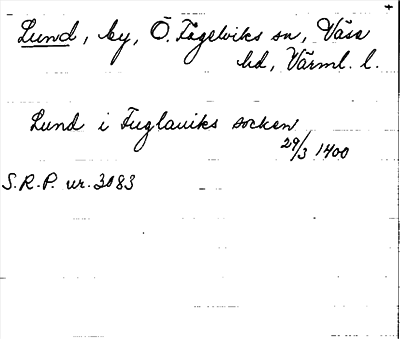 Lund, by, Ö. Fågelviks sn, Väse
hd, Värml. l.
Lund i Fuglauiks socken
29/3 1400
S.R.P. nr. 3083